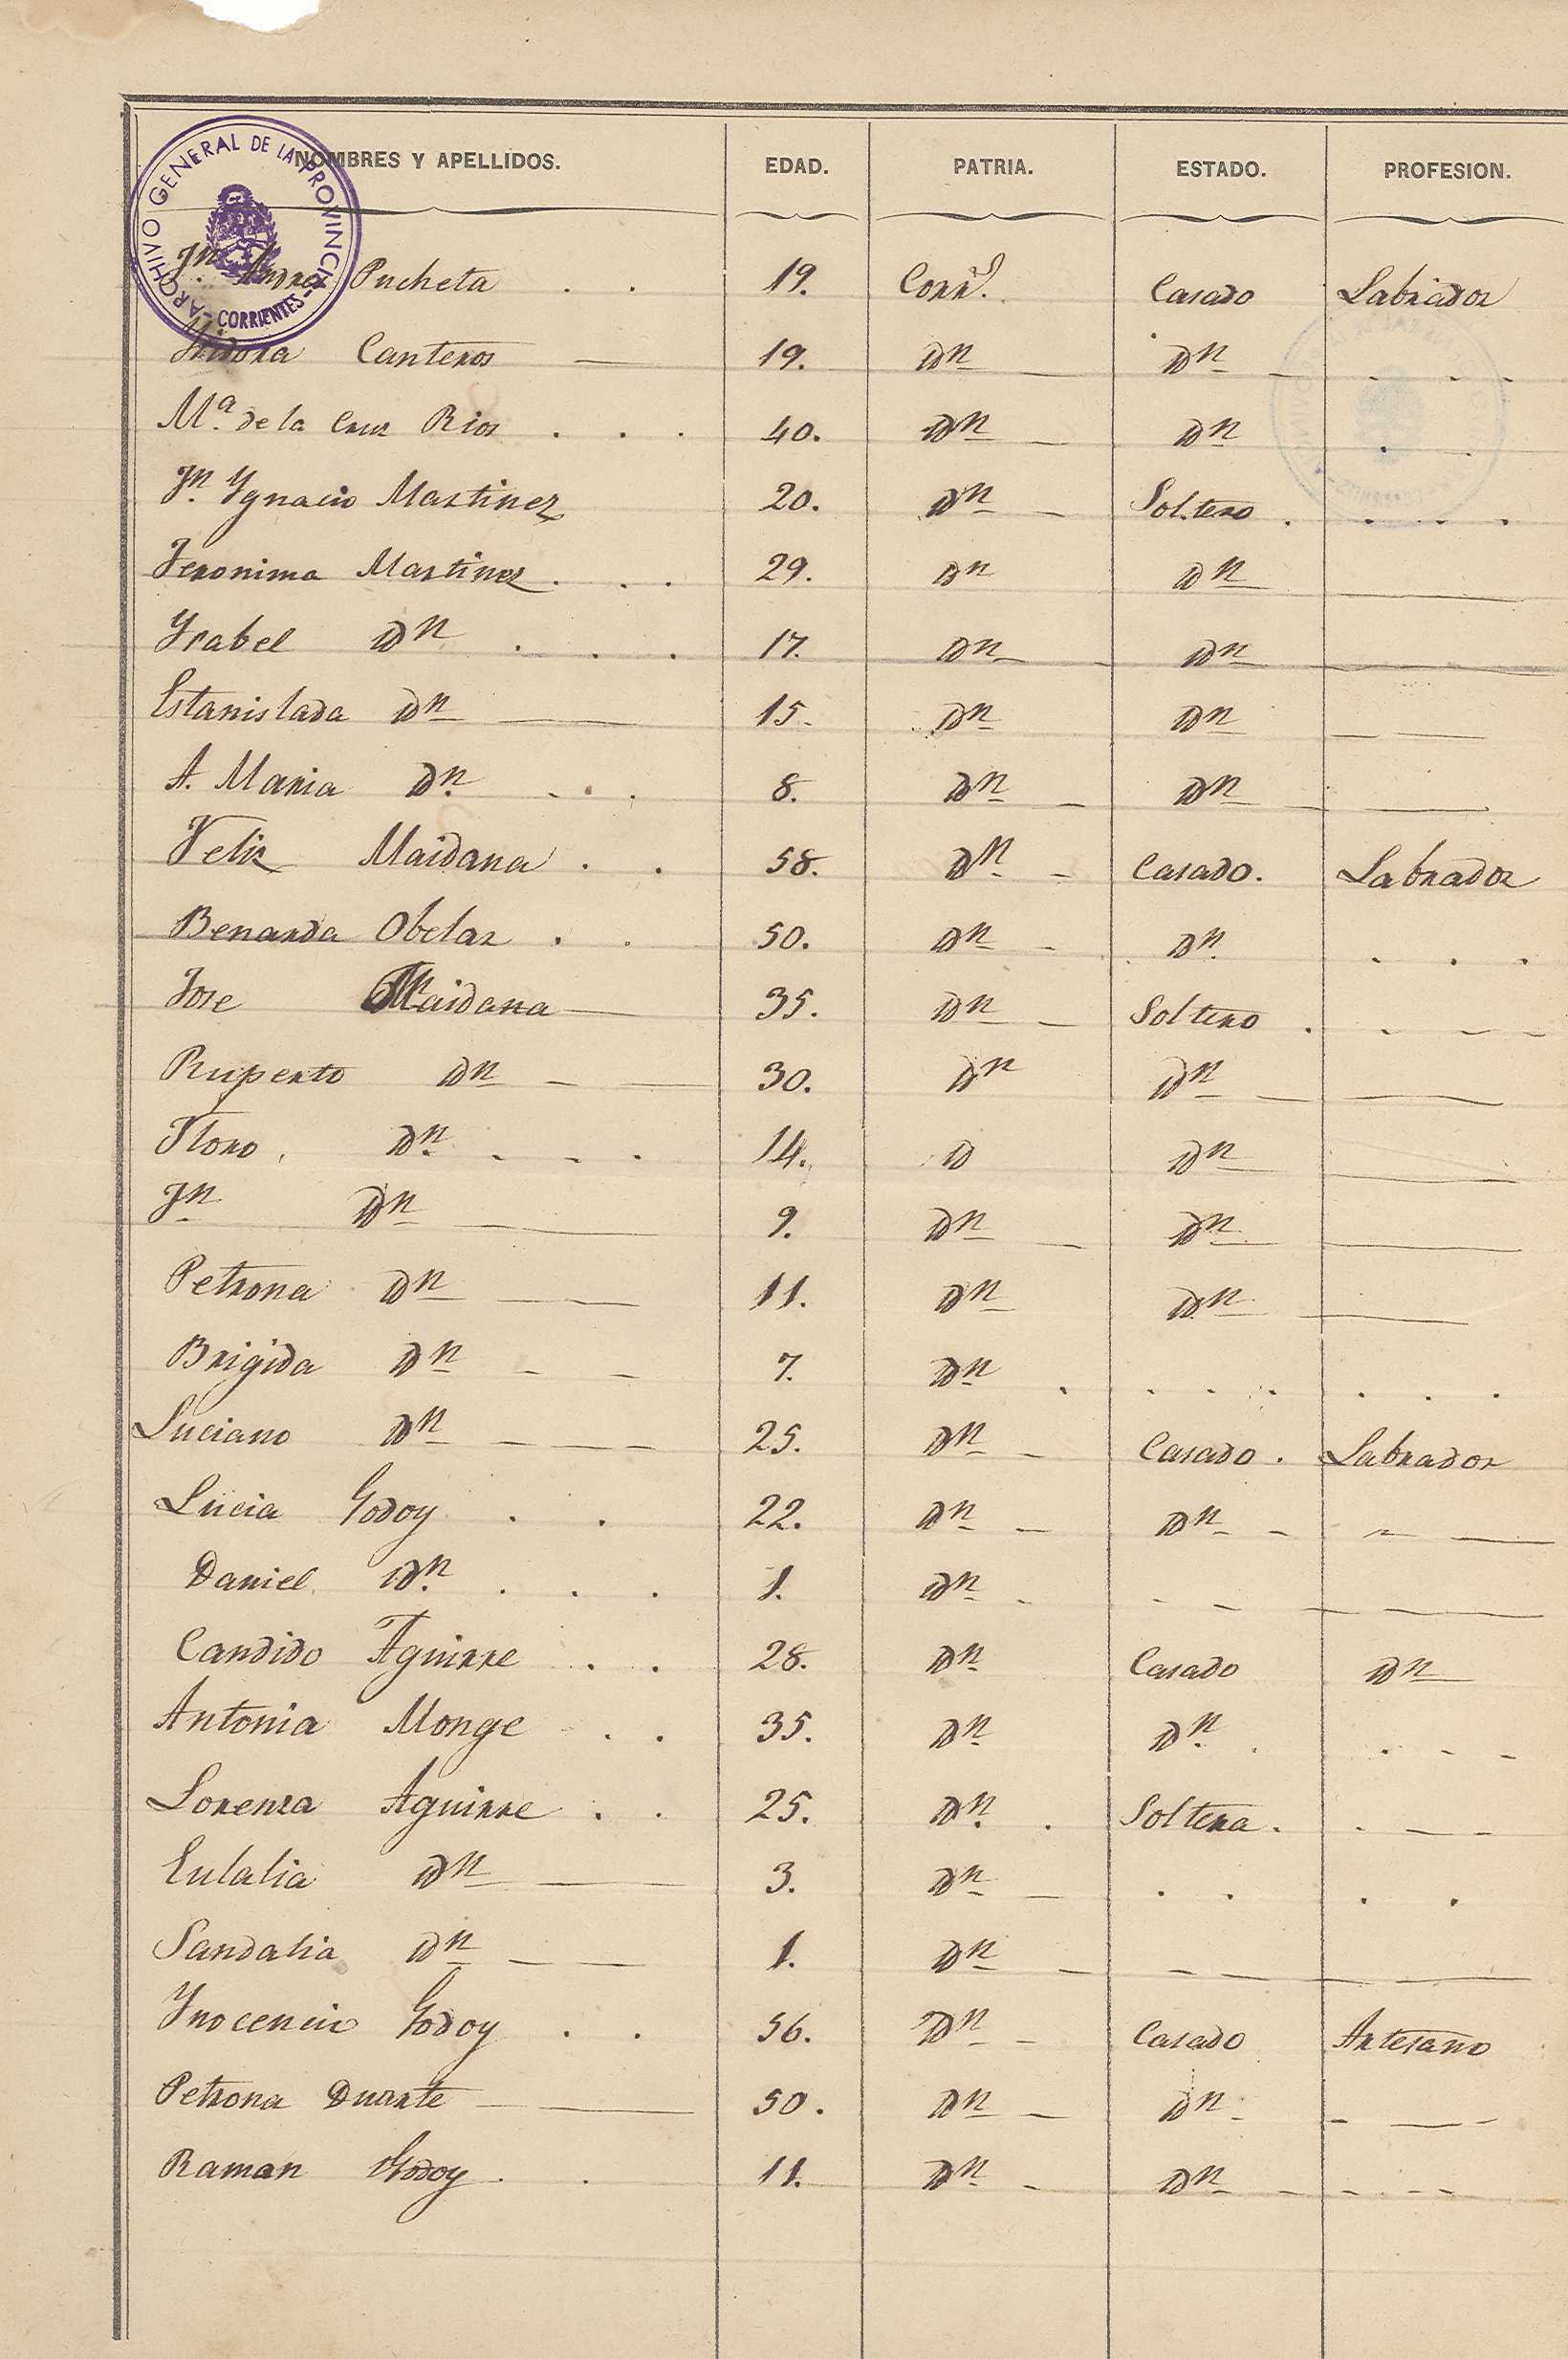 ARCHIVO GENERAL DE LA PROVINCIA - CORRIENTES -
NOMBRES Y APELLIDOS. EDAD. PATRIA. ESTADO. PROFESION.
Jn. Andres Pucheta 19. Corrs. Casado Labrador
Ysidora Canteros 19. Dn Dn
Ma. de la Crus Rios 40. Dn Dn
Jn. Ygnacio Martinez 20. Dn Soltero
Jeronima Martinez 29. Dn Dn
Ysabel Dn 17. Dn Dn
Estanislada Dn 15. Dn Dn
A. Maria Dn. 8. Dn Dn
Feliz Maidana 58. Dn Casado. Labrador
Benarda Obelar 50. Dn Dn.
Jose Maidana 35. Dn Soltero
Ruperto Dn 30. Dn Dn
Floro Dn. 14. D Dn
Jn Dn 9. Dn Dn
Petrona Dn 11. Dn Dn
Brigida Dn 7. Dn
Luciano Dn 25. Dn Casado. Labrador
Lucia Godoy 22. Dn Dn
Daniel Dn. 1. Dn
Candido Aguirre 28. Dn Casado Dn
Antonia Monge 35. Dn Dn.
Lorenza Aguirre 25. Dn. Soltera.
Eulalia Dn 3. Dn
Sandalia Dn 1. Dn
Ynocencio Godoy 56. Dn Casado Artesano
Petrona Duarte 50. Dn Dn
Raman Godoy 11. Dn Dn